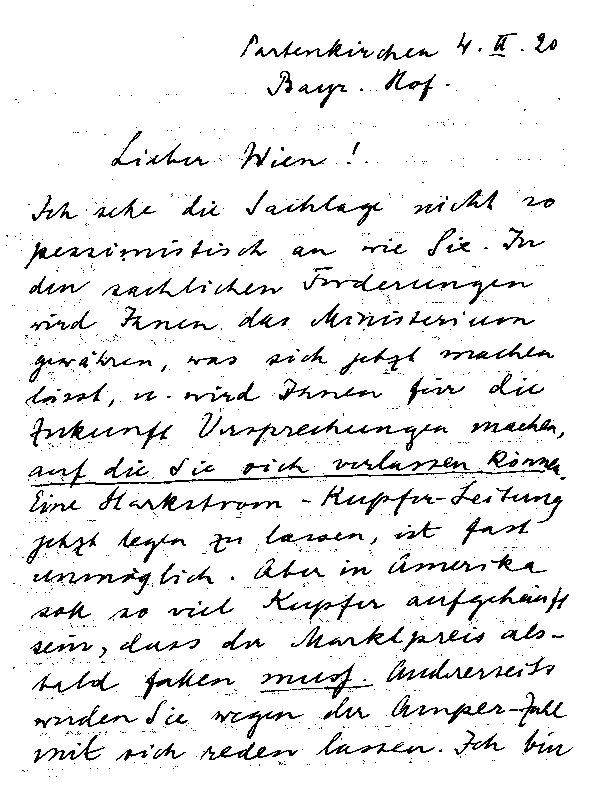 Partenkirchen 4. II. 20
Bayr. Hof.
Lieber Wien!
Ich sehe die Sachlage nicht so
pessimistisch an wie Sie. In
den sachlichen Forderungen
wird Ihnen das Ministerium
gewähren, was sich jetzt machen
lässt, u. wird Ihnen für die
Zukunft Versprechungen machen,
auf die Sie sich verlassen können.
Eine Starkstrom-Kupfer-Leitung
jetzt legen zu lassen, ist fast
unmöglich. Aber in Amerika
soll so viel Kupfer aufgehäuft
sein, dass der Marktpreis als-
bald fallen muss. Andrerseits
werden Sie wegen der Amper-Zahl
mit sich reden lassen. Ich bin